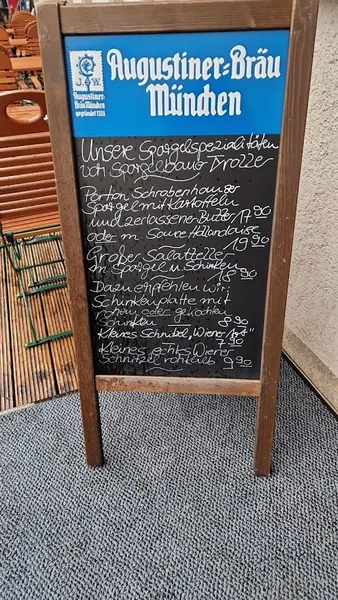 Augustiner-Bräu
München
J. W.
Augustiner-
Bräu München
gegründet 1328
Unsere Spargelspezialitäten
von Spargelbauer Troller
Portion Schrobenhausner
Spargel mit Kartoffeln
und zerlassener Butter 17 90
oder m. Sauce Hollandaise
19 90
Großer Salatteller
m. Spargel u. Schinken
18 90
Dazu empfehlen wir:
Schinkenplatte mit
rohem oder gekochten
Schinken 8 90
Kleines Schnitzel „Wiener Art“
7 90
Kleines echtes Wiener
Schnitzel 9 90